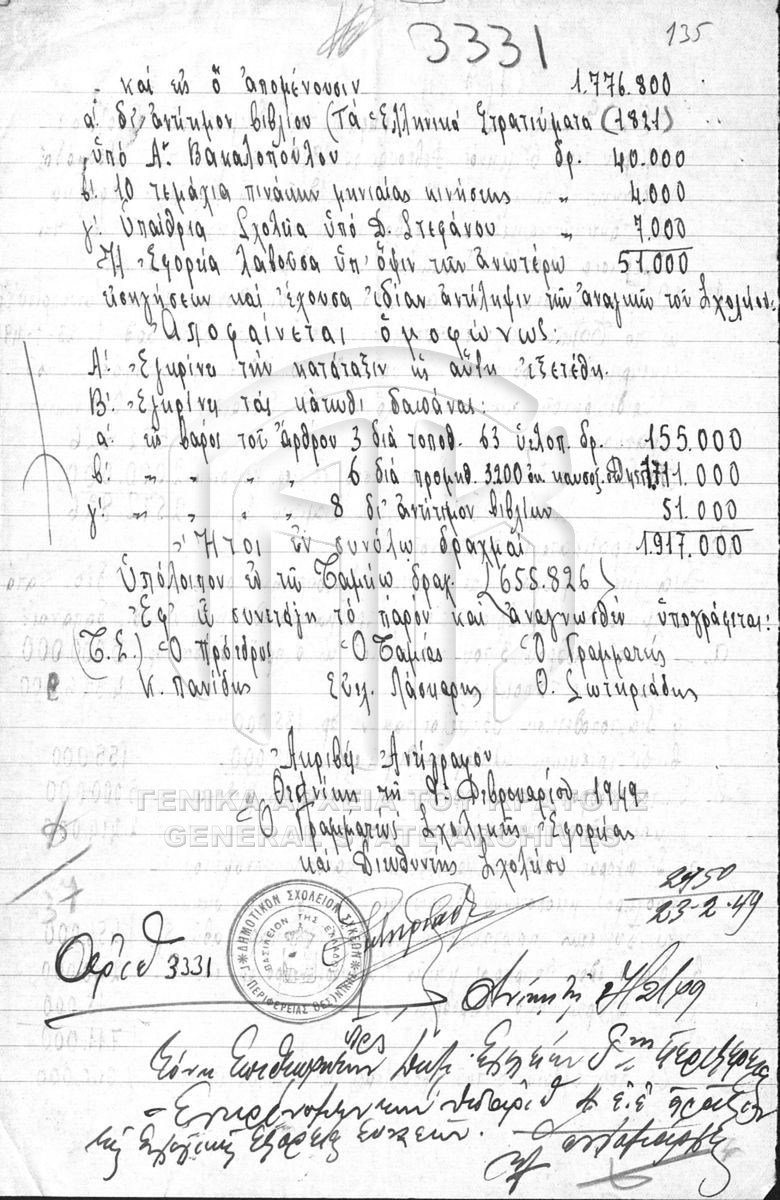 3331
135
καὶ εἰς ὃ ἀπομένουσιν 1.776.800
α' δι' ἀντίτιμον βιβλίου (Τὰ Ἑλληνικὰ Στρατεύματα (1821)
ὑπὸ Ἀπ. Βακαλοπούλου δρ. 40.000
β'. 10 τεμάχια πινάκων μηνιαίας κινήσεως " 4.000
γ'. Ὑπαίθρια Σχολεῖα ὑπὸ Δ. Στεφάνου " 7.000
Ἡ Ἐφορεία λαβοῦσα ὑπ' ὄψιν τῶν ἀνωτέρω 51.000
εἰσηγήσεων καὶ ἔχουσα ἰδίαν ἀντίληψιν τῶν ἀναγκῶν τοῦ Σχολείου:
Ἀποφαίνεται ὁμοφώνως:
Α'. Ἐγκρίνει τὴν κατάταξιν ὡς αὕτη ἐξετέθη.
Β'. Ἐγκρίνει τὰς κάτωθι δαπάνας:
α'. εἰς βάρος τοῦ ἄρθρου 3 διὰ τοποθ. 63 ὑελοπ. δρ. 155.000
β'. " " " " 6 διὰ προμηθ. 3200 ὀκ. καυσοξ. 1.711.000
γ'. " " " " 8 δι' ἀντίτιμον βιβλίων 51.000
Ἤτοι ἐν συνόλῳ δραχμαὶ 1.917.000
Ὑπόλοιπον ἐν τῷ Ταμείῳ δραχ. {658.826}
Ἐφ' ᾧ συνετάγη τὸ παρὸν καὶ ἀναγνωσθὲν ὑπογράφεται:
(Τ.Σ.) Ὁ Πρόεδρος Ὁ Ταμίας Ὁ Γραμματεὺς
Κ. Πανίδης Εὐαγ. Λάσκαρης Θ. Σωτηριάδης
Ἀκριβὲς Ἀντίγραφον
Θεσ/νίκη τῇ Φεβρουαρίου 1949
Ὁ Γραμματεὺς Σχολικῆς Ἐφορείας
καὶ Διευθυντὴς Σχολείου
ΓΕΝΙΚΑ ΑΡΧΕΙΑ ΤΟΥ ΚΡΑΤΟΥΣ
GENERAL STATE ARCHIVES
2450
23-2-49
ΔΗΜΟΤΙΚΟΝ ΣΧΟΛΕΙΟΝ ΣΥΚΕΩΝ
ΠΕΡΙΦΕΡΕΙΑΣ ΘΕΣ/ΝΙΚΗΣ
ΒΑΣΙΛΕΙΟΝ ΤΗΣ ΕΛΛΑΔΟΣ
Ἀριθ 3331
Πρὸς